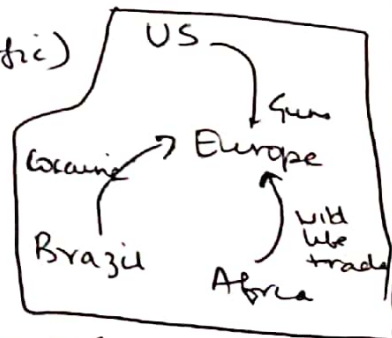 fic)
US
Guns
Cocaine
Europe
Brazil
wild
life
trade
Africa